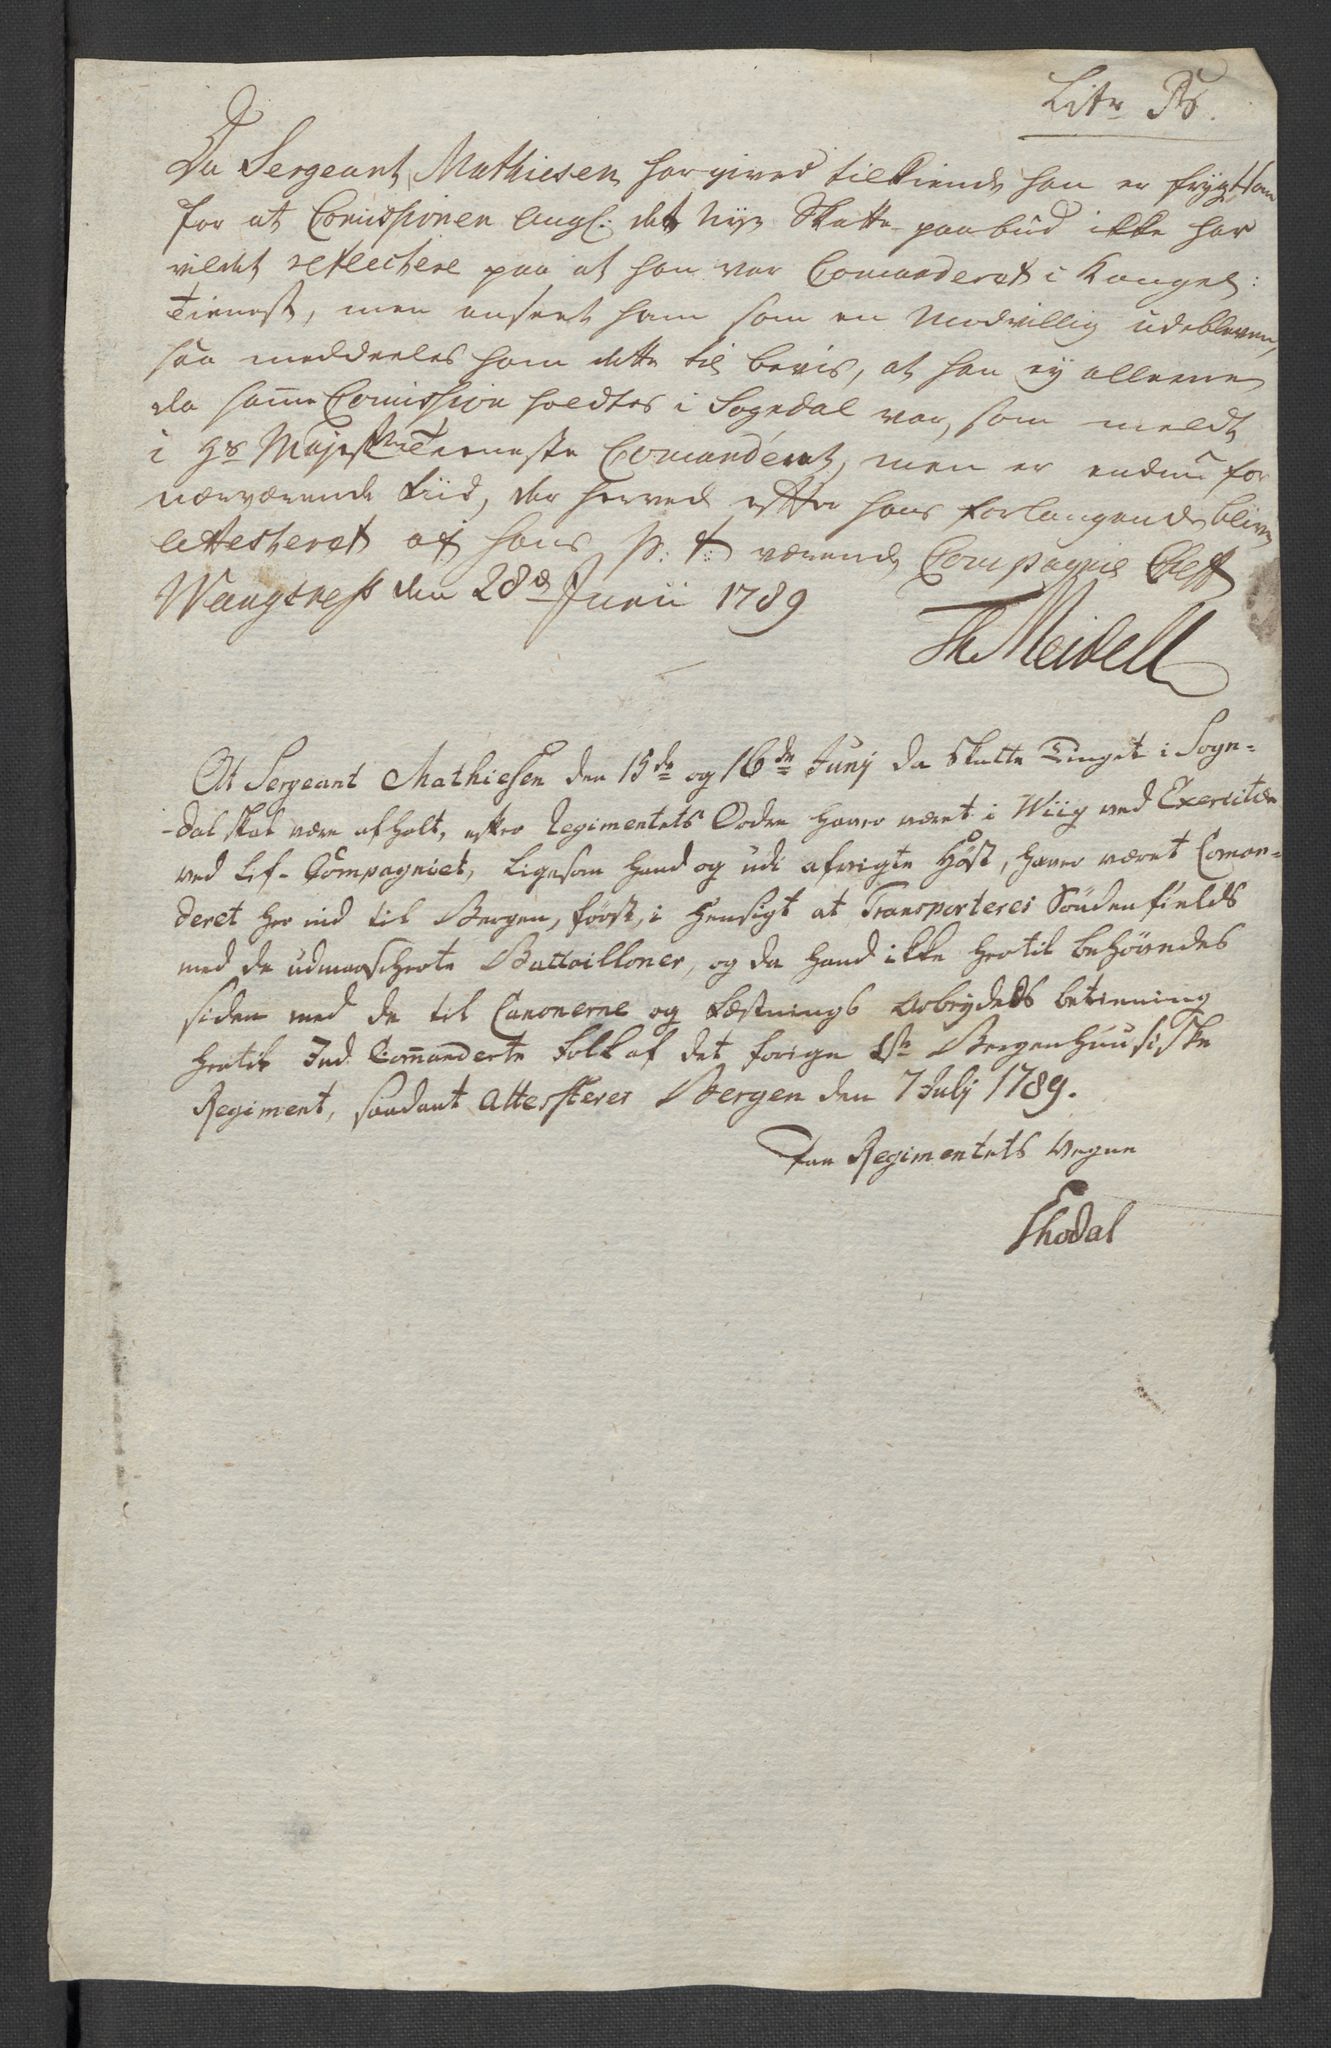 Litr B.
Da Sergeant Mathiesen har gived tilkiende han er frygtsom
for at Comissionen angl: det nye Skatte paabud ikke har
vildet reflectere paa at han var Comanderet i Kongel:
Tieneste, men anseet ham som en Modvillig udebleven,
saa meddeeles ham dette til beviis, at han ey alleene
da samme Comission holdtes i Sogndal var, som meldt
i Hs Majestts Tieneste Comanderet, men er endnu for
nærværende tiid, der herved efter hans forlangende bliver
Attesteret af hans p: t: værende Compagnie Cheff
den 28d Junii 1789
Th Meidell
At Sergeant Mathiesen den 15de og 16de Junij da Skatte Tinget i Sogn-
-dal skal være afholt, efter Regimentets Ordre haver været i Wiig ved Exercitien
ved Lif-Compagniet, ligesom hand og udi afvigte Høst, haver været Coman-
deret her ind til Bergen, først, i Hensigt at Transporteres Söndenfields
med de udmarscherte Battailloner, og da hand ikke hertil behøvedes
siden med de til Canonerne og Fæstnings Arbeydets betienning
hertil Ind Commanderte Folk af det forige 1ste Bergenhuusiske
Regiment, saadant Attesteres Bergen den 7 Julj 1789.
Paa Regimentets Vegne